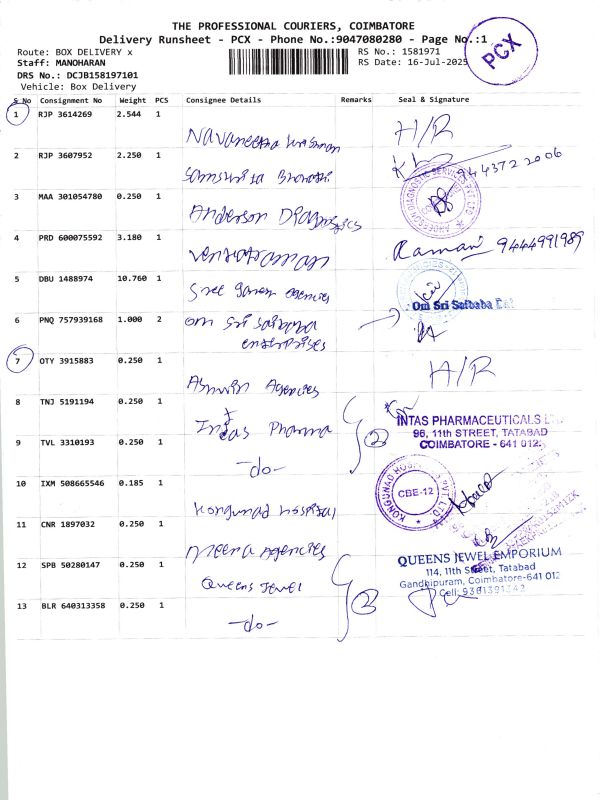 THE PROFESSIONAL COURIERS, COIMBATORE
Delivery Runsheet - PCX - Phone No.:9047080280 - Page No.:1
Route: BOX DELIVERY x
RS No.: 1581971
Staff: MANOHARAN
RS Date: 16-Jul-2025
DRS No.: DCJB158197101
Vehicle: Box Delivery
PCX
S No Consignment No Weight PCS Consignee Details Remarks Seal & Signature
1 RJP 3614269 2.544 1 H/R
2 RJP 3607952 2.250 1 9443722006
3 MAA 301054780 0.250 1 Anderson Diagnostics
4 PRD 600075592 3.180 1 Venkatraman Raman 9444991989
5 DBU 1488974 10.760 1 Sree Agencies
6 PNQ 757939168 1.000 2 Om Sri Saibaba
enterprises
Om Sri Saibaba
7 OTY 3915883 0.250 1 Aswin Agencies H/R
8 TNJ 5191194 0.250 1 Intas Pharma 2
INTAS PHARMACEUTICALS
96, 11th STREET, TATABAD
COIMBATORE - 641 012.
9 TVL 3310193 0.250 1 -do-
10 IXM 508665546 0.185 1 Kongunad Hospital
KONGUNAD HOSPITAL PVT. LTD
CBE-12
11 CNR 1897032 0.250 1 Meera Agencies
12 SPB 50280147 0.250 1 Queens Jewel 2
QUEENS JEWEL EMPORIUM
114, 11th Street, Tatabad
Gandhipuram, Coimbatore-641 012
Cell: 9361391342
13 BLR 640313358 0.250 1 -do-